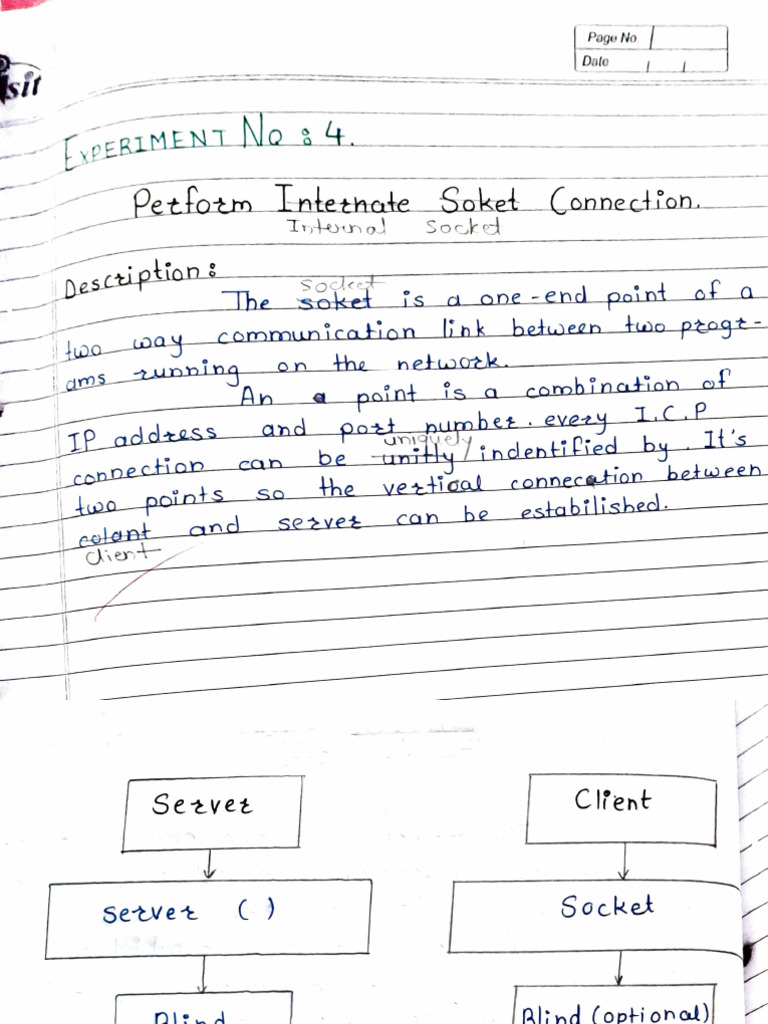 Page No
Date / /
sit
EXPERIMENT No : 4.
Perform Internate Soket Connection.
Internal Socket
Description :
socket
The soket is a one-end point of a
two way communication link between two progr-
ams running on the network.
An a point is a combination of
IP address and port number. every I.C.P
uniquely
connection can be unitly / indentified by. It's
two points so the vertical connecation between
colant and server can be estabilished.
client
Server Client
server ( ) Socket
Blind Blind (optional)